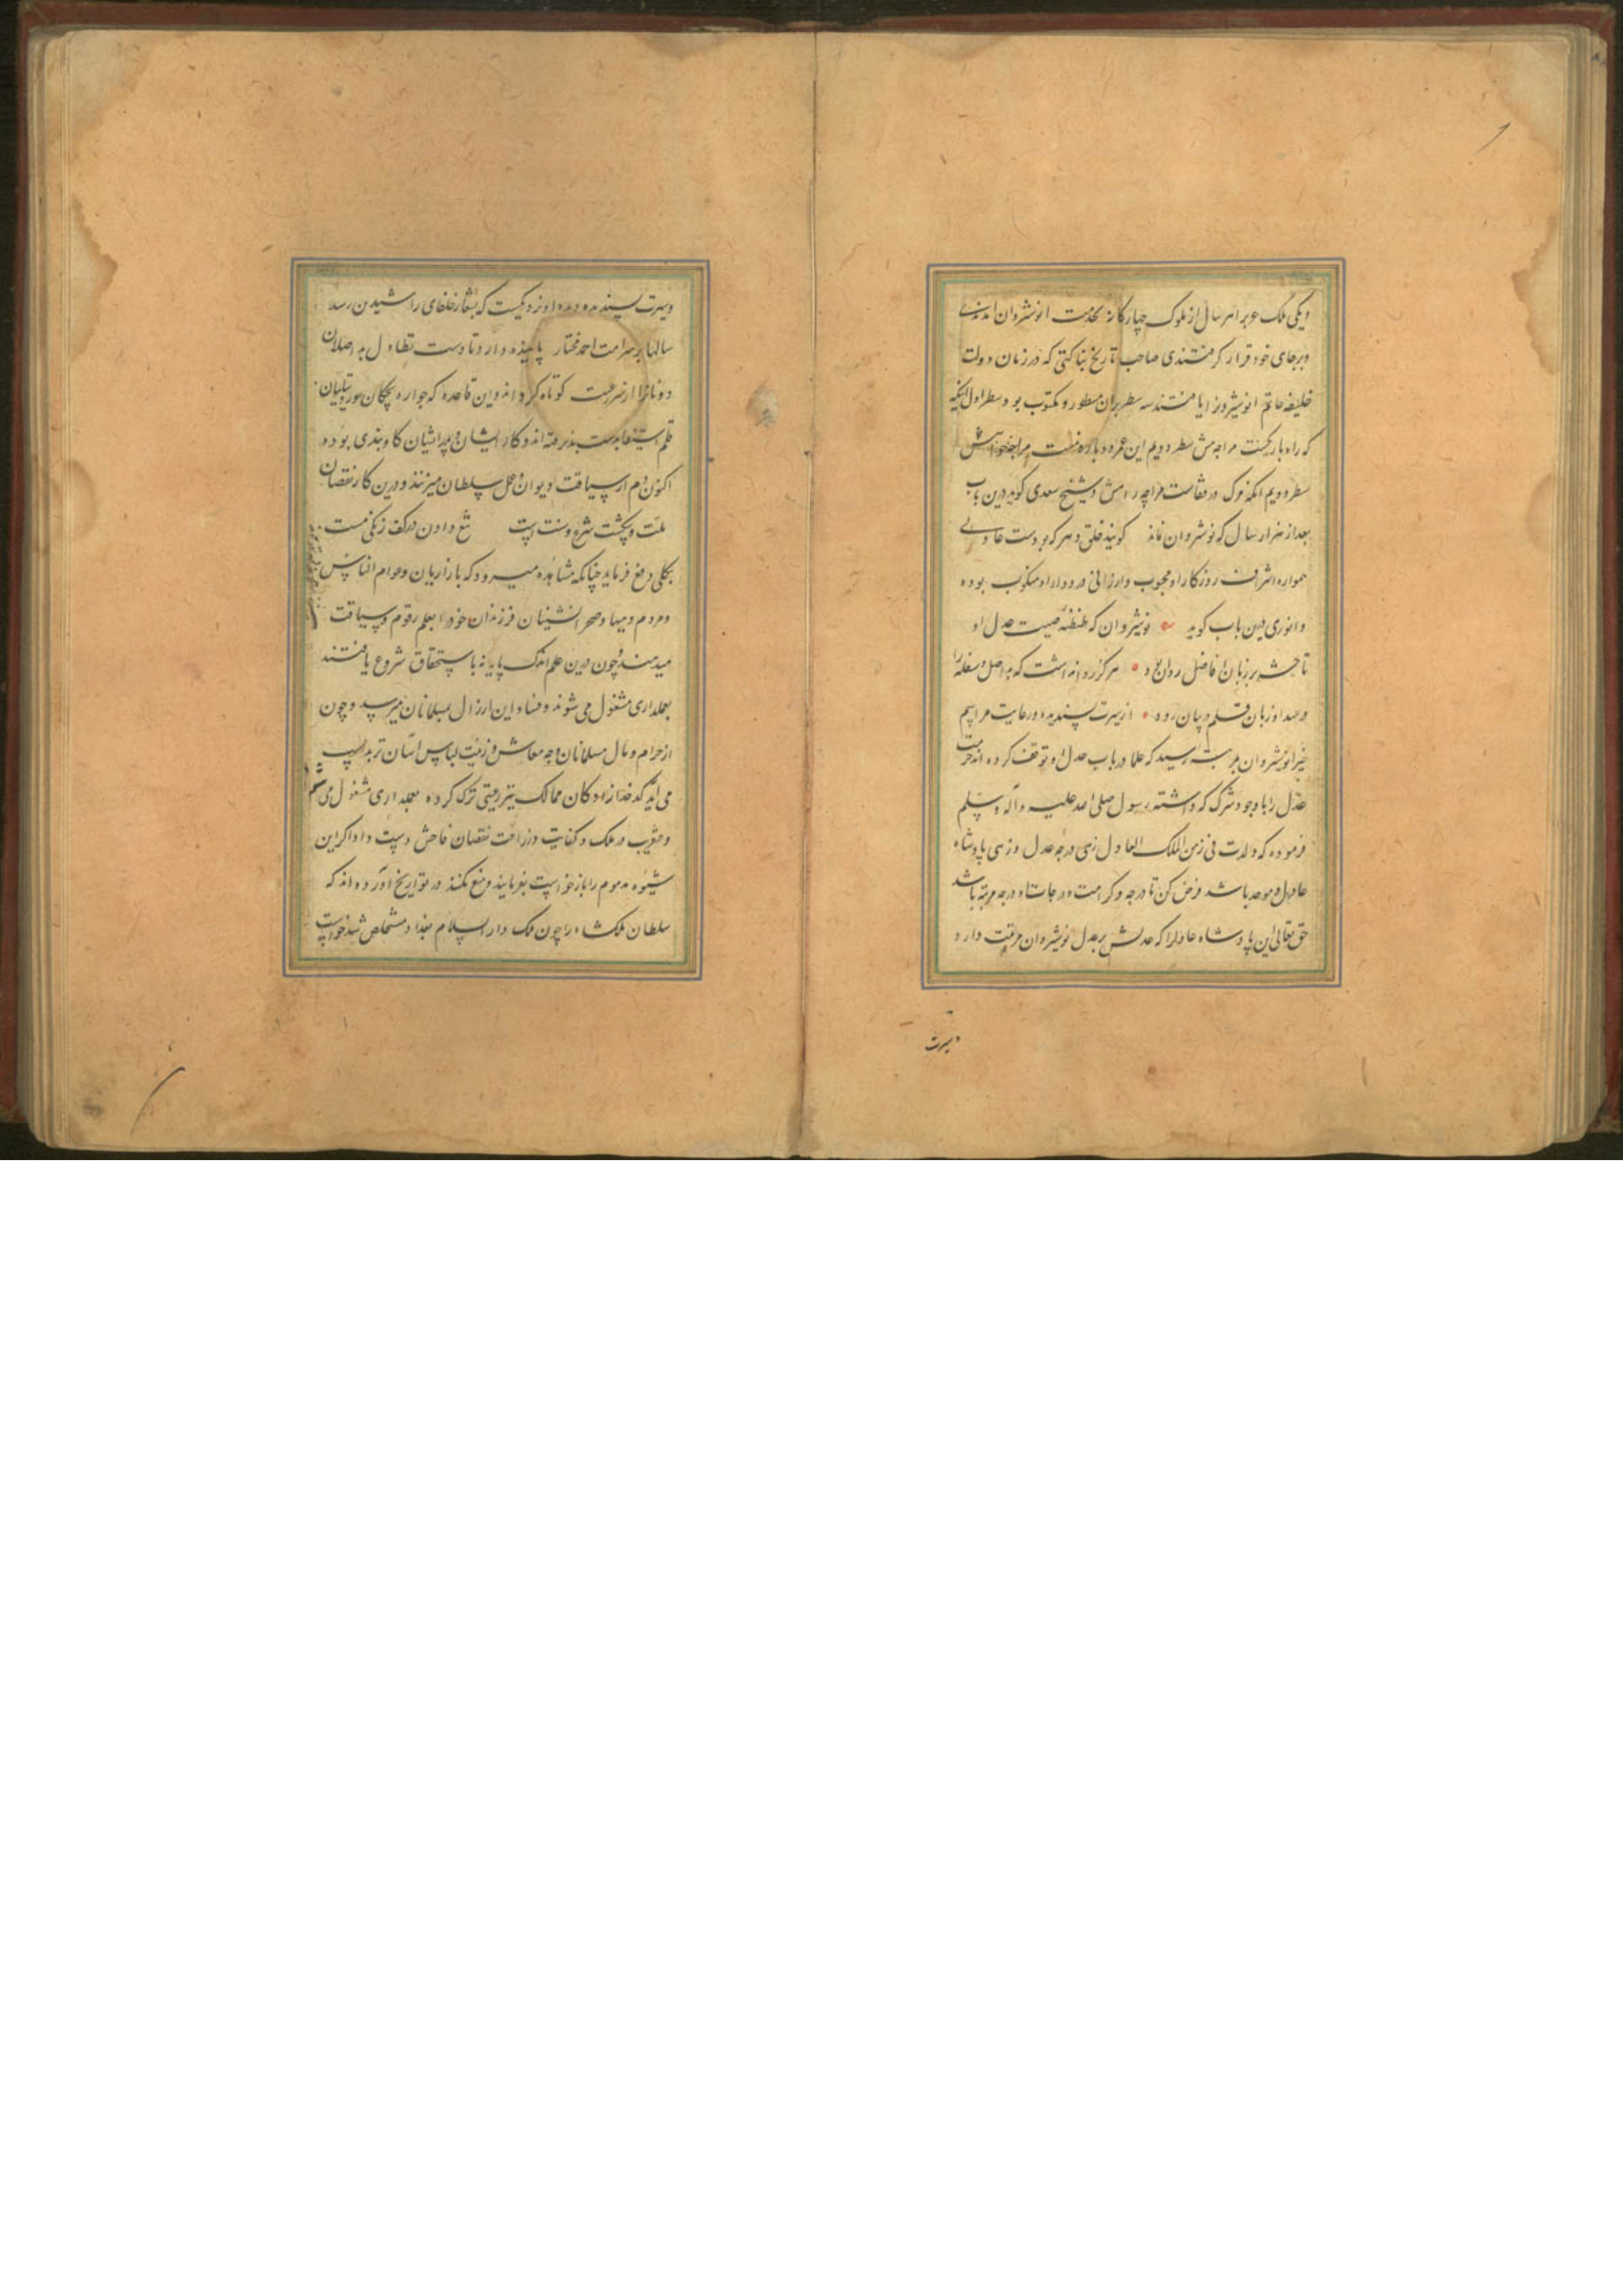 ویکی ملک عرب هر سال از ملوک چهارکانه بخدمت انوشروان آمدندی
وبرجای خود قرار کرفتندی صاحب تاریخ بناکتی که در زمان دولت
خلیفه خاتم انوشیروان را یافتند سه سطر بران مسطور و مکتوب بود سطر اول آنکه
که راه باریکست مرا چه سطر دویم این عمر دوباره نیست مرا چه خواهش
سطر دویم آنکه مرک در قفاست مرا چه رامش و شیخ سعدی کوید درین باب
بعد از هزار سال که نوشروان نماند کویند خلق دهر که بودست عادلی
همواره اشراف روزکار او محبوب و ارزانی در دور او منکوب بوده
و انوری درین باب کوید نوشیروان که طنطنه صیت عدل او
تا حشر بر زبان افاضل روان بود هرکز روا نداشت که بد اصل و سفله را
در عهد او زبان قلم و بیان رود از سیرت پسندیده و رعایت مراسم
خیر انوشیروان بمرتبه رسید که علما در باب عدل او توقف کرده اند حرمت
عدل را با وجود شرک که داشته رسول صلی الله علیه وآله وسلم
فرموده که ولدت فی زمن الملک العادل زهی درجه عدل و زهی پادشاه
عادل و موحد باشد فرض کن تا درجه و کرامت و درجات او درجه مرتبه باشد
حق تعالی این پادشاه عادل را که عدلش بر عدل نوشیروان مرتبت دارد
وسیرت
وسیرت پسندیده او نزدیکست که بشعار خلفای راشیدین رسد
سالها بر سر امت احمد مختار پاینده دارد تا دست تطاول بد اصلان
و دونانرا از سر رعیت کوتاه کرداند و این قاعده که جواره بچکان
قلم استیفا بدست کرفته اند و کار ایشان و پدر ایشان کاوبندی بوده
اکنون دم از سیاقت دیوان و عمل سلطان میزنند و درین کار نقصان
ملت و شکست شرع و سنت است تیغ دادن در کف زنکی مست
بکلی دفع فرماید چنانکه مشاهده میرود که بازاریان و عوام الناس
و مردم دیها و صحرانشینان فرزندان خود را بعلم رقوم و سیاقت
میدهند و چون درین علم اندک پایه نه باستحقاق شروع یافتند
بعملداری مشغول می شوند و فساد این ارزال بمسلمانان میرسد و چون
از حرام و مال مسلمانان وجه معاش و زینت لباس آسان تر بدست
می آید کدخدازادکان ممالک نیز رعیتی ترک کرده بعملداری مشغول می شوند
و عنقریب در ملک و کفایت و زراعت نقصان فاحش دست داد اکر این
شیوه مذموم را باز خواست نفرمایند و منع نکنند در تواریخ آورده اند که
سلطان ملکشاه را چون ملک دار السلام بغداد مستخلص شد خواست